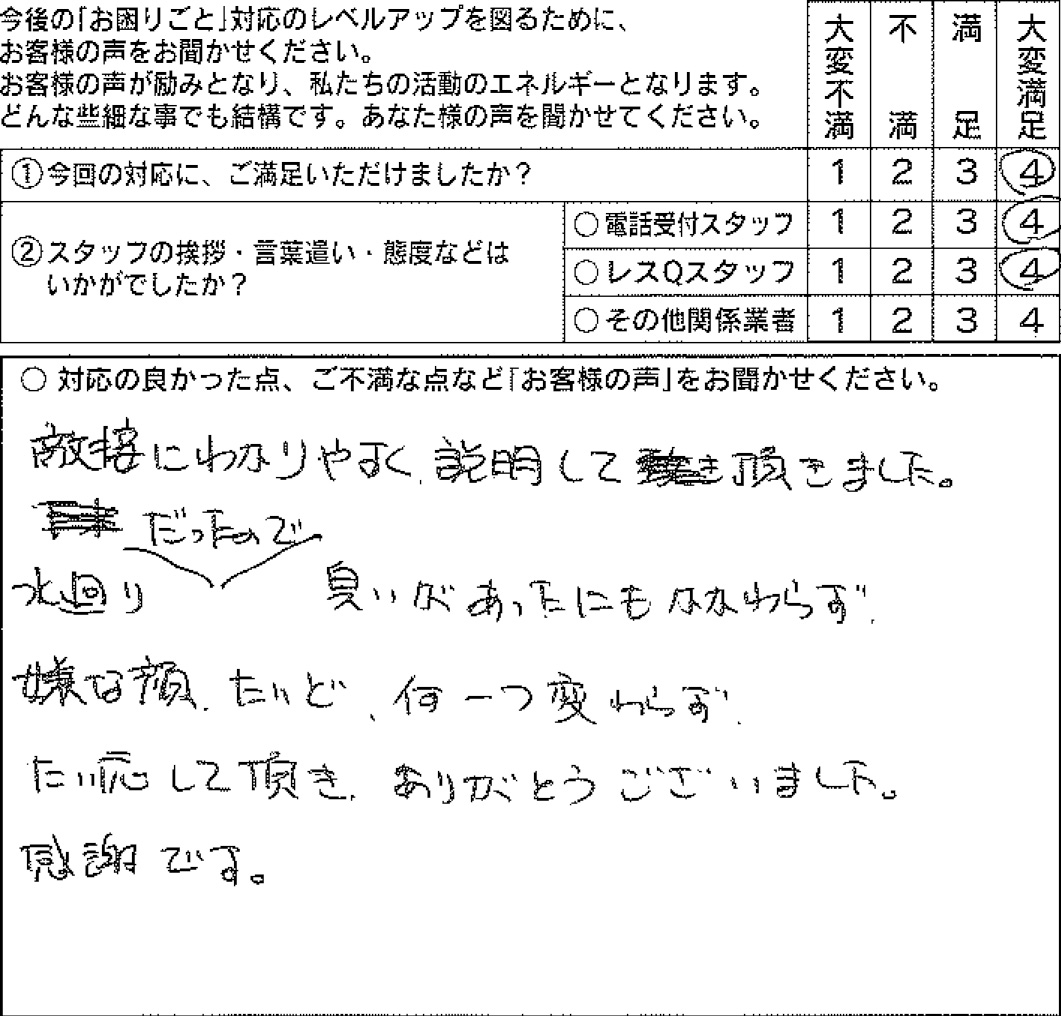 今後の「お困りごと」対応のレベルアップを図るために、
お客様の声をお聞かせください。
お客様の声が励みとなり、私たちの活動のエネルギーとなります。
どんな些細な事でも結構です。あなた様の声を聞かせてください。
大変不満 不満 満足 大変満足
①今回の対応に、ご満足いただけましたか？ 1 2 3 4
②スタッフの挨拶・言葉遣い・態度などは
いかがでしたか？
○電話受付スタッフ 1 2 3 4
○レスQスタッフ 1 2 3 4
○その他関係業者 1 2 3 4
○ 対応の良かった点、ご不満な点など「お客様の声」をお聞かせください。
にわかりやすく、説明して頂きました。
だったので
水回り 臭いがあったにもかかわらず、
嫌な顔、たいど、何一つ変わらず、
たい応して頂き、ありがとうございました。
感謝です。